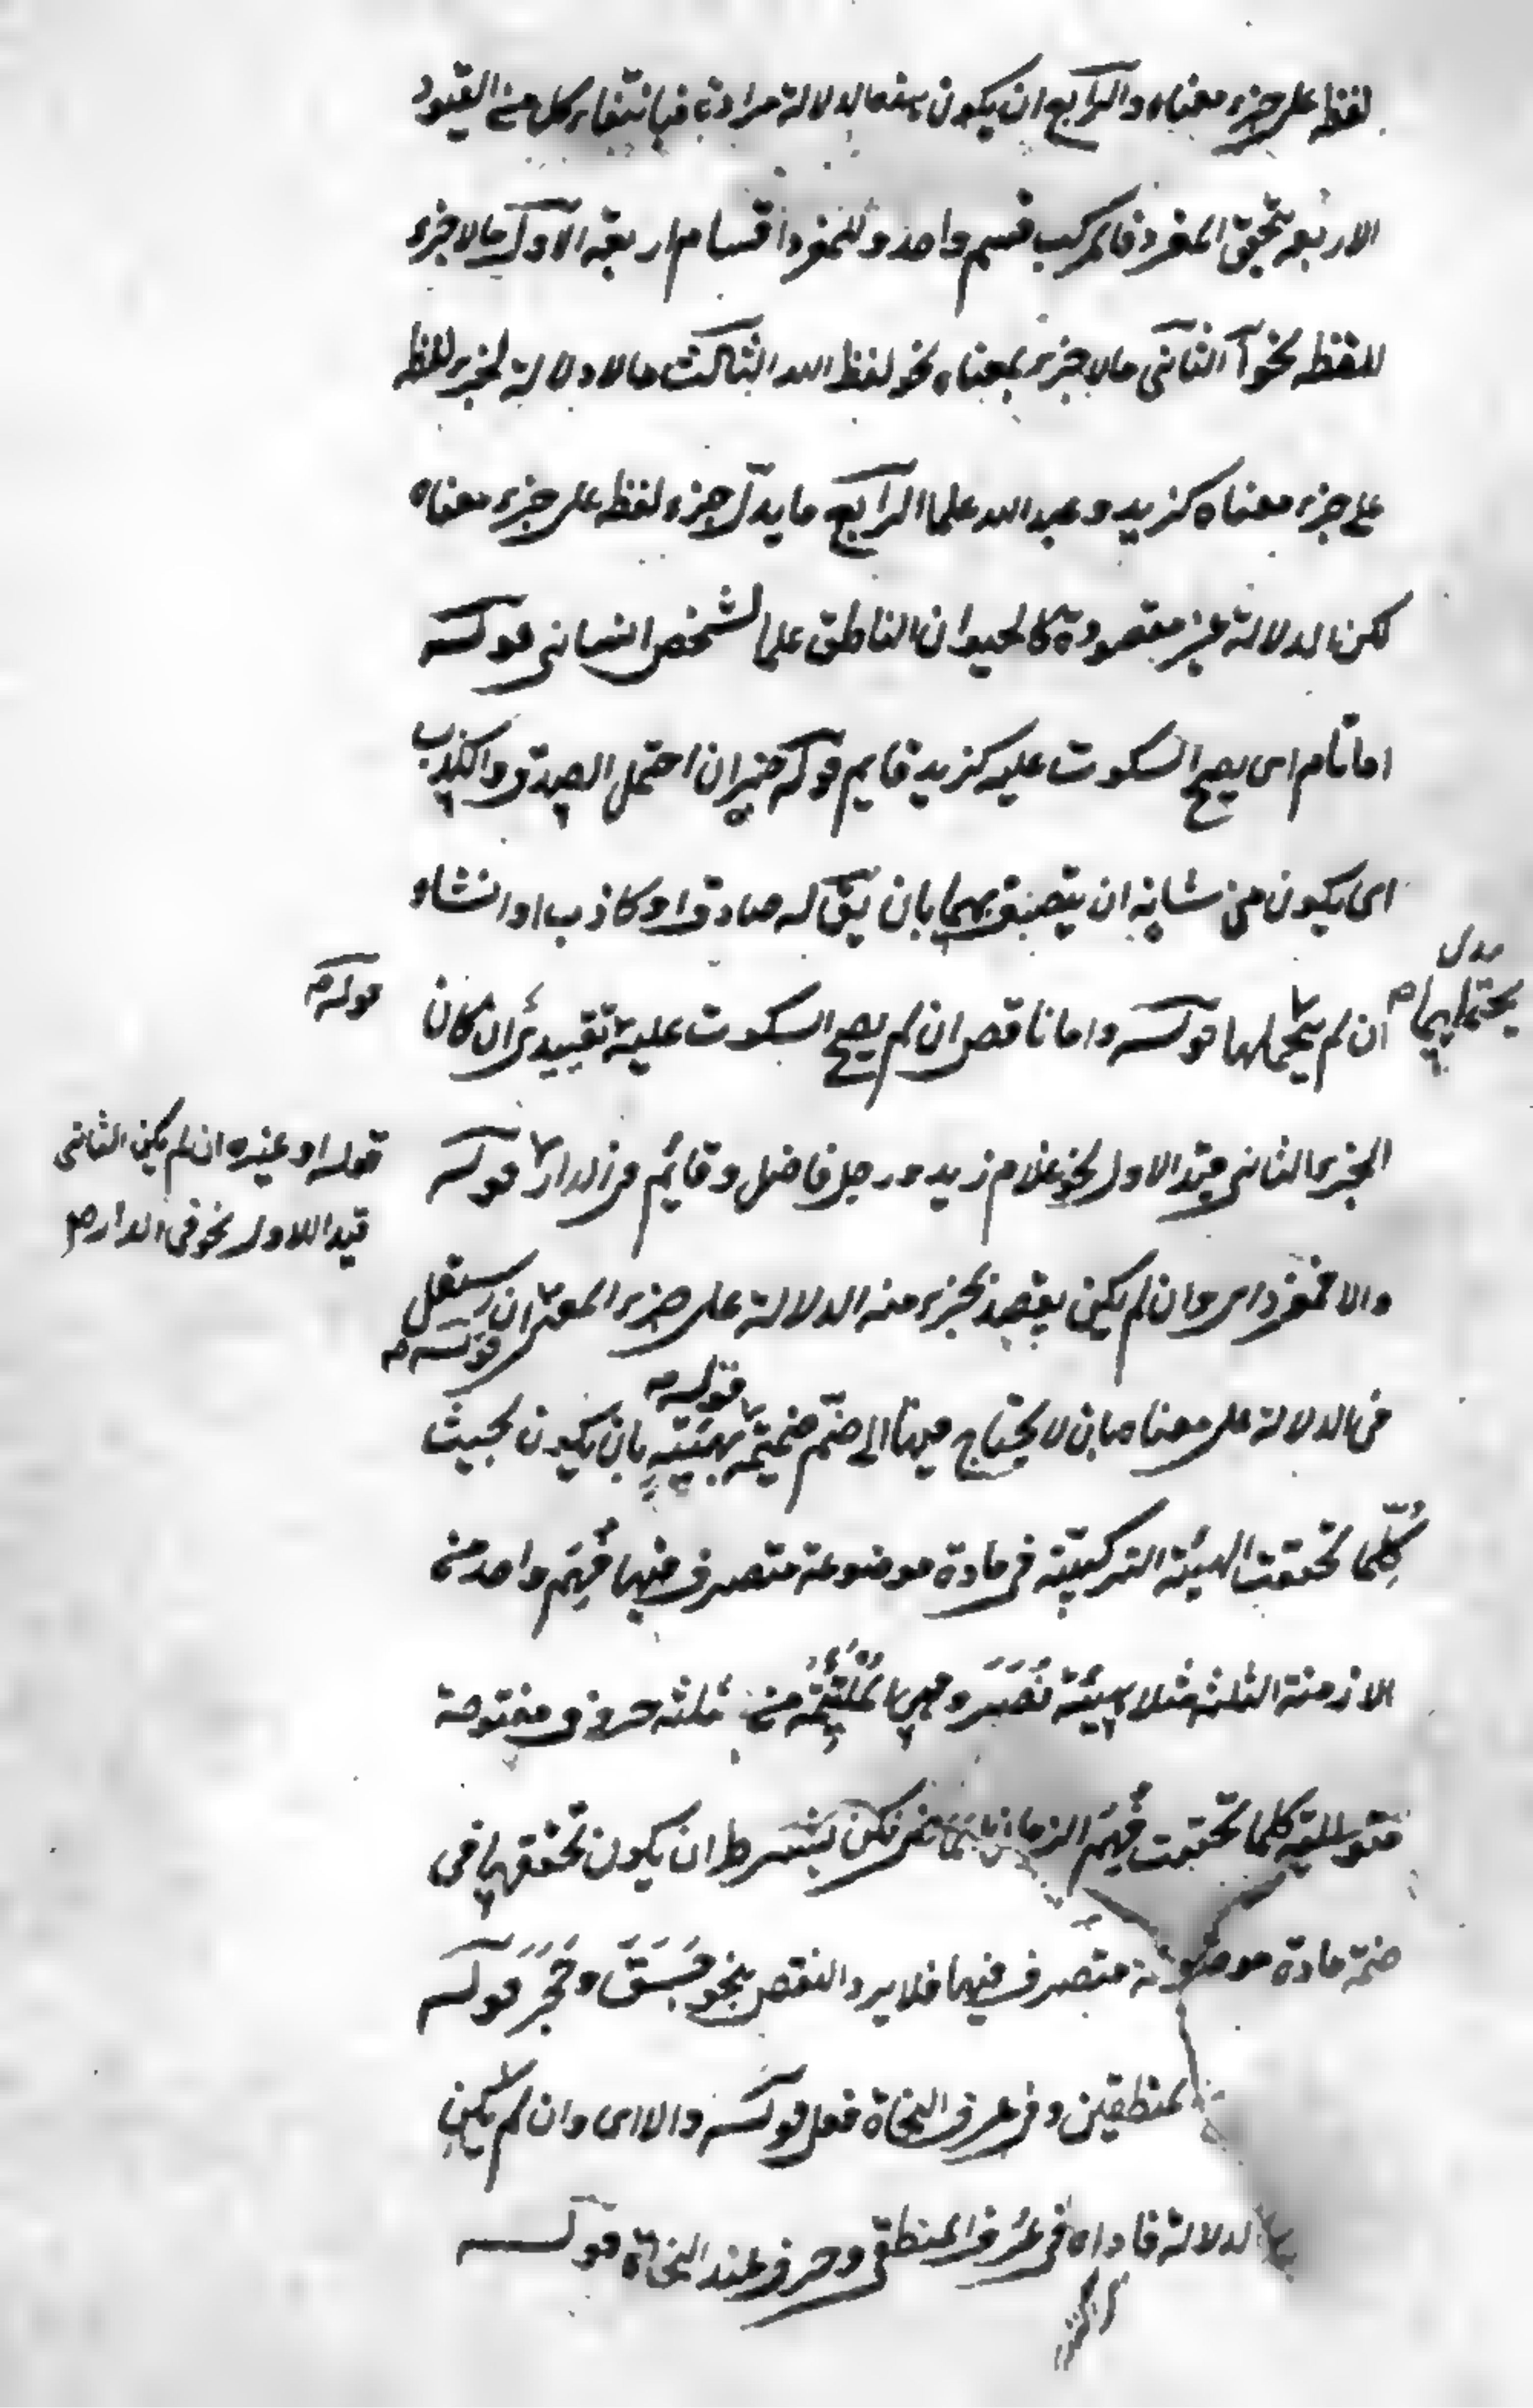 لفظه على جزء معناه والرابع ان يكون هذه الدلالة مرادة فبانتفاء كل من القيود
الاربعة يتحقق المفرد فالمركب قسم واحد وللمفرد اقسام اربعة الاول مالا جزء
للفظه نحو أ الثانى مالا جزء لمعناه نحو لفظ الله الثالث مالا دلالة لجزء لفظه
على جزء معناه كزيد وعبد الله علما الرابع ما يدل جزء لفظه على جزء معناه
لكن الدلالة غير مقصودة كالحيوان الناطق علما لشخص انسانى قوله
اما تام اى يصح السكوت عليه كزيد قايم قوله خبر ان احتمل الصدق والكذب
اى يكون من شانه ان يتصف بهما بان يق له صادق او كاذب او انشاء
يحتملهما
ان لم يحتملهما قوله واما ناقص ان لم يصح السكوت عليه تقييدى ان كان
قوله
الجزء الثانى قيد الاول نحو غلام زيد ورجل فاضل وقائم فى الدار قوله
قوله او غيره ان لم يكن الثانى
قيدا للاول نحو فى الدار
والا فمفرد اى وان لم يكن يقصد بجزء منه الدلالة على جزء المعنى ان استقل
قوله
فى الدلالة على معناه بان لا يحتاج فيها الى ضم ضميمة بهيئته بان يكون بحيث
قوله
كُلّما تحققت الهيئة التركيبية فى مادة موضوعة متصرف فيها فُهِمَ واحد من
الازمنة الثلثة مثلا هيئة نَصَرَ وهى المُلْتَئِمَة من ثلثة حروف مفتوحة
متوالية كلما تحققت فُهِمَ الزمان الماضى لكن بشرط ان يكون تحققها فى
ضمن مادة موضوعة متصرف فيها فلا يرد النقص بنحو جَسَقَ وحَجَرَ قوله
المنطقين وفى عرف النحاة فعل قوله والا اى وان لم يكن
الدلالة فاداة فى عُرف المنطقى وحرف عند النحاة قوله